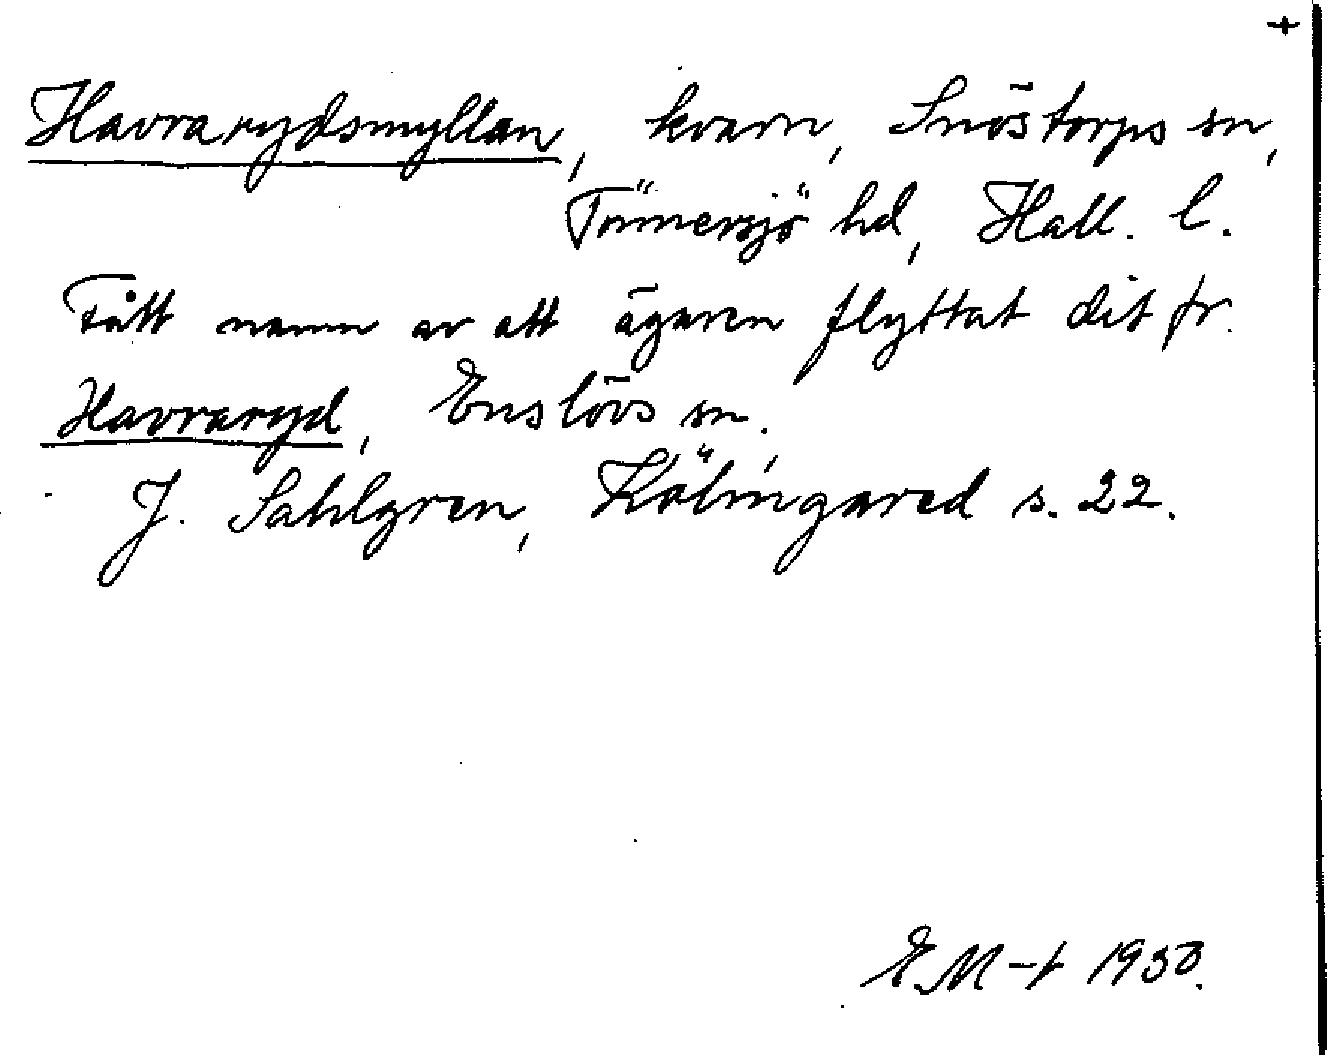 +
Havrarydsmyllan, kvarn, Snöstorps sn,
Tönnersjö hd, Hall. l.
Fått namn av att ägaren flyttat dit fr.
Havraryd, Enslövs sn.
J. Sahlgren, Kölingared s. 22.
E.M-t